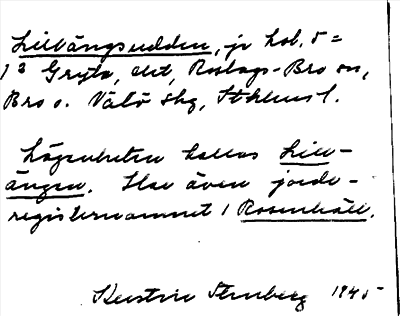 Lillängsudden, jr hob. 5 =
1³ Gryta, dit, Rslags-Bro sn,
Bro o. Vätö skg, Sthlms l.
Lägenheten kallas Lill-
ängen. Har även jorde-
registernamnet 1 Rosenhäll.
Kerstin Stenberg 1945